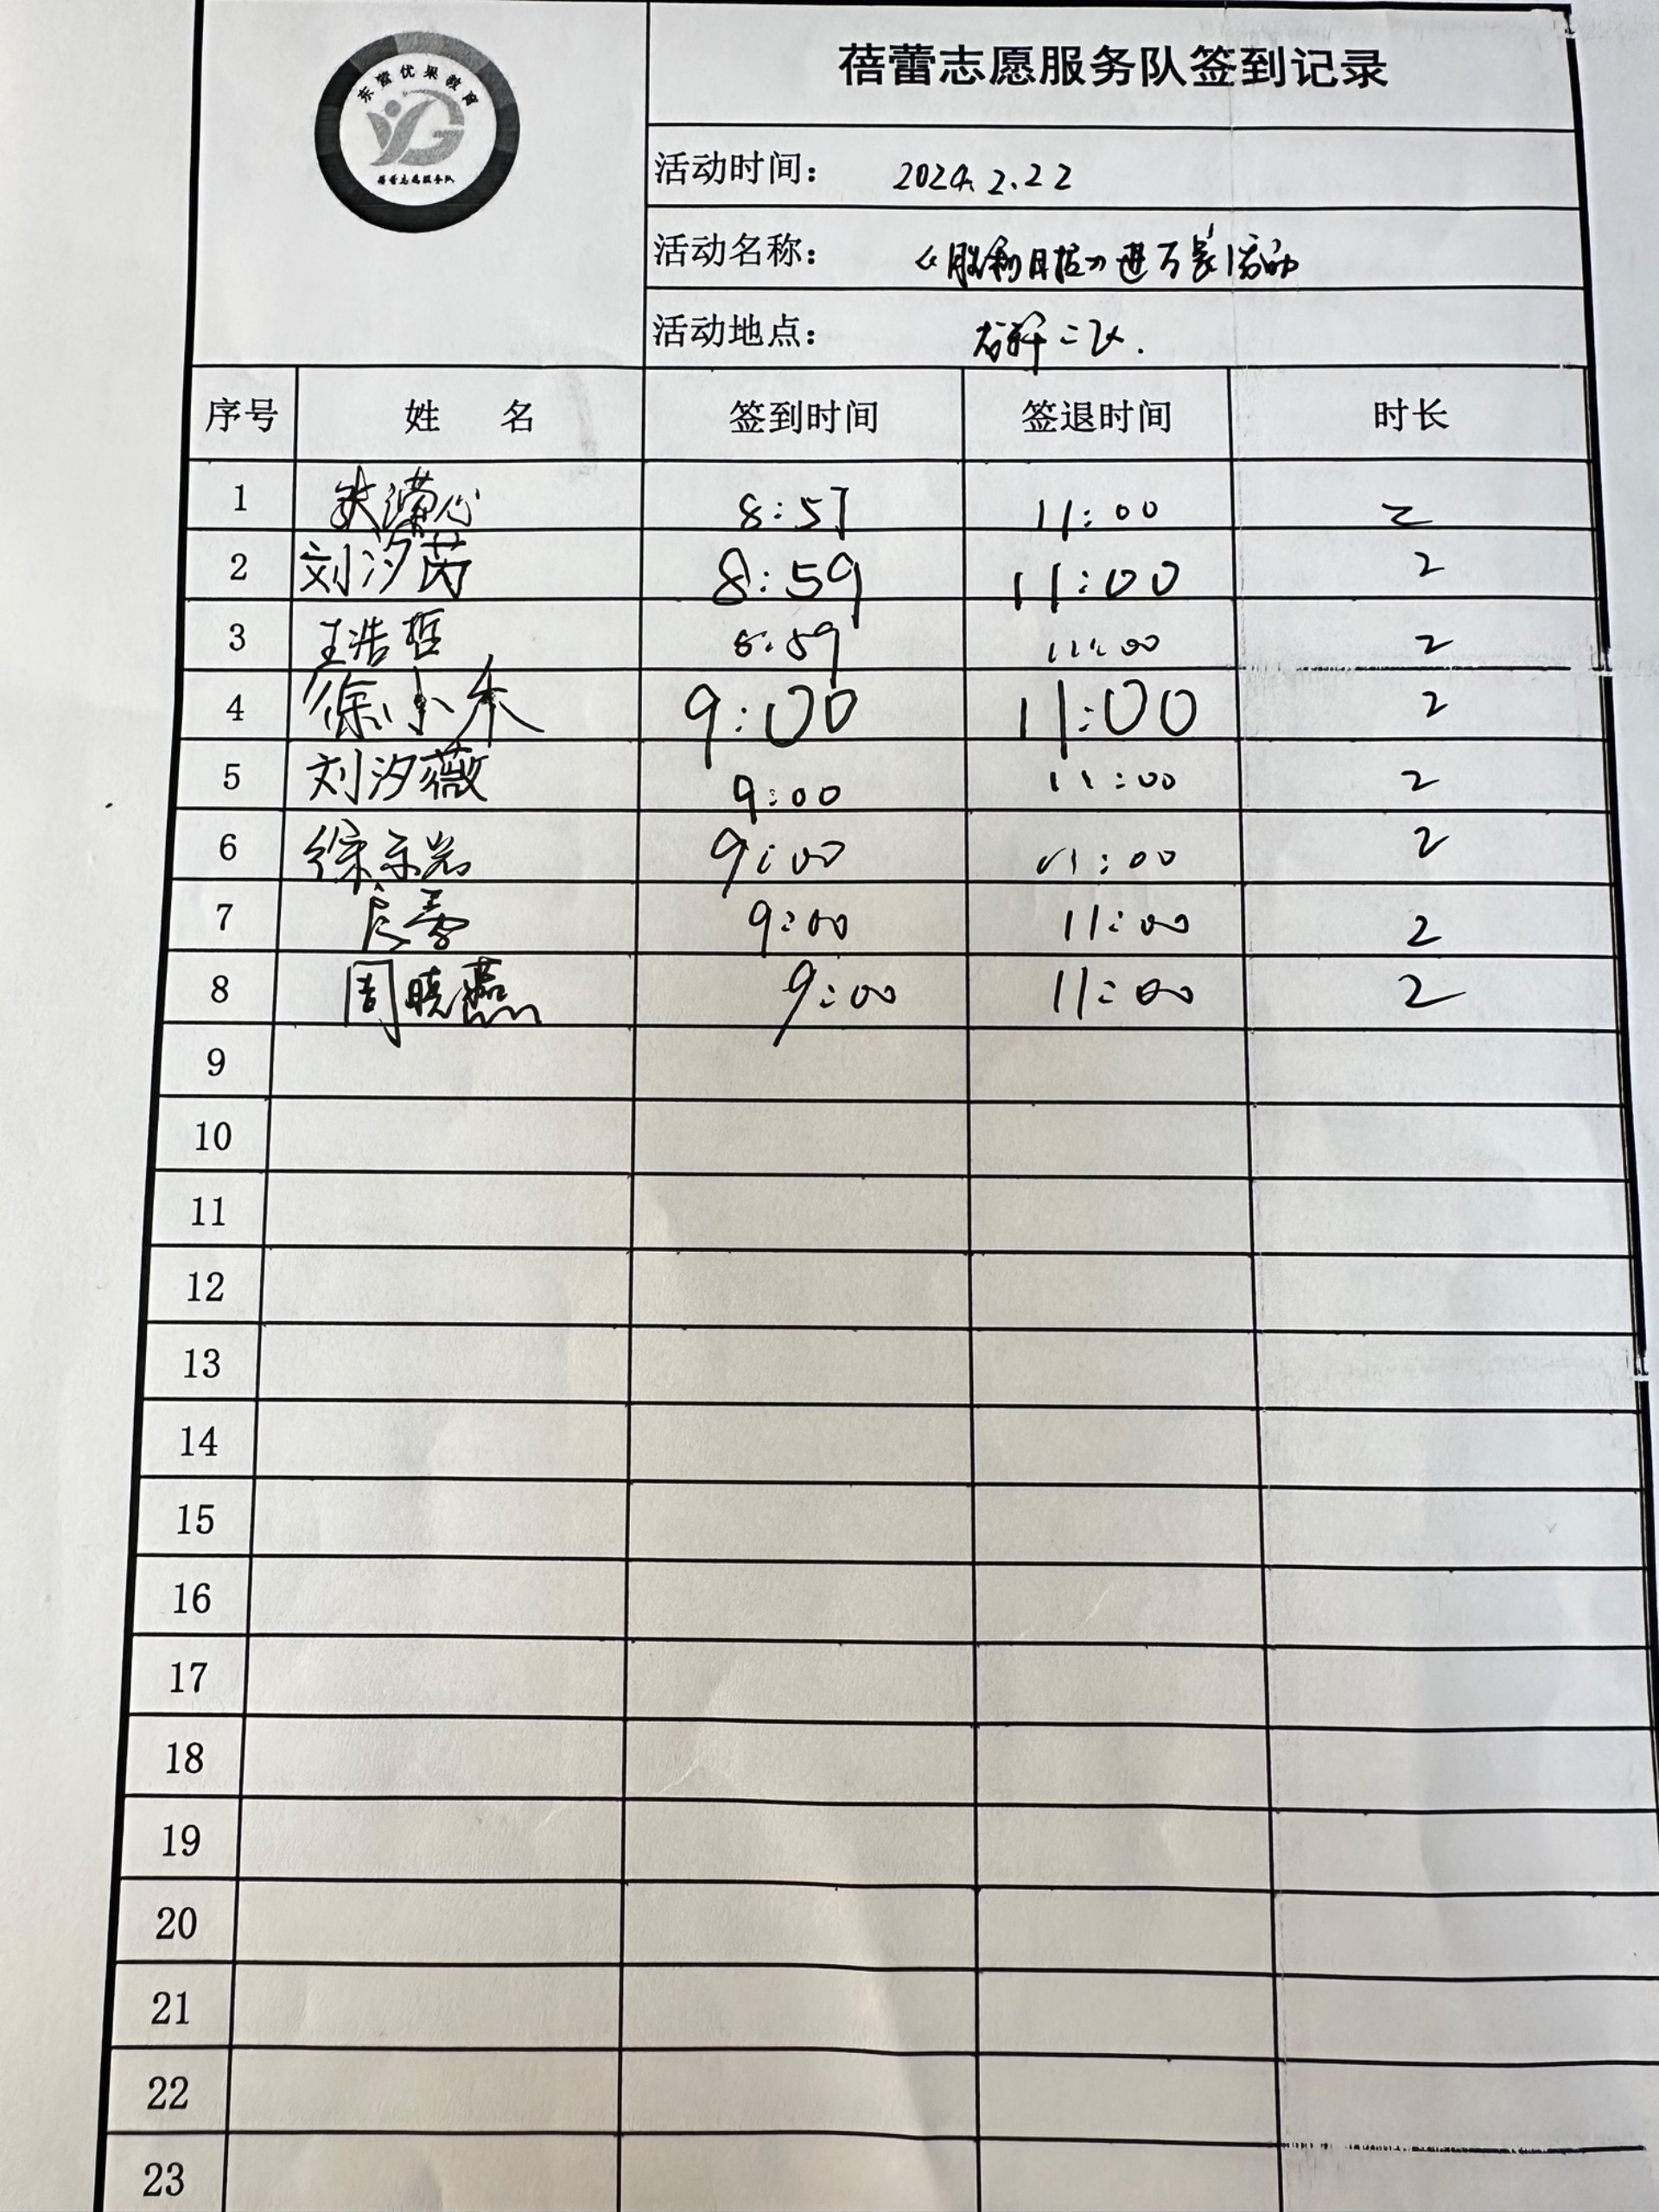 东营优果教育
蓓蕾志愿服务队
蓓蕾志愿服务队签到记录
活动时间： 2024.2.22
活动名称： 《胜利日报》进万家活动
活动地点： 二区.
序号 姓 名 签到时间 签退时间 时长
1 8:57 11:00 2
2 刘汐芮 8:59 11:00 2
3 王浩哲 8:59 11:00 2
4 徐小禾 9:00 11:00 2
5 刘汐薇 9:00 11:00 2
6 9:00 11:00 2
7 9:00 11:00 2
8 周晓燕 9:00 11:00 2
9
10
11
12
13
14
15
16
17
18
19
20
21
22
23